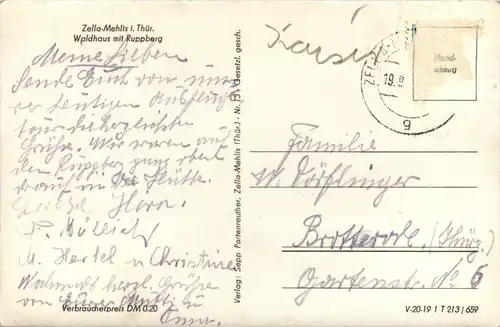 Zella-Mehlis i. Thür.
Waldhaus mit Ruppberg
Meine Lieben
Sende Euch von uns
rer heutigen Ausflugs
tour die herzlichsten
Grüße. Wir waren auf
den Ruppberg ganz oben
drauf in der Hütte.
Horn.
M. Hertel u Christine
Nochmals herzl. Grüße
von Eurer Mutti u
Verbraucherpreis DM 0.20
Verlag: Sepp Partenreuther, Zella-Mehlis (Thür.) · Nr. 13 · Gesetzl. gesch.
Hand-
abzug
ZELLA-M
19.9.
g
Familie
W. Dörflinger
Brotterode. (Thürg.)
Gartenstr. No 6
V-20-19 1 T 213 | 659